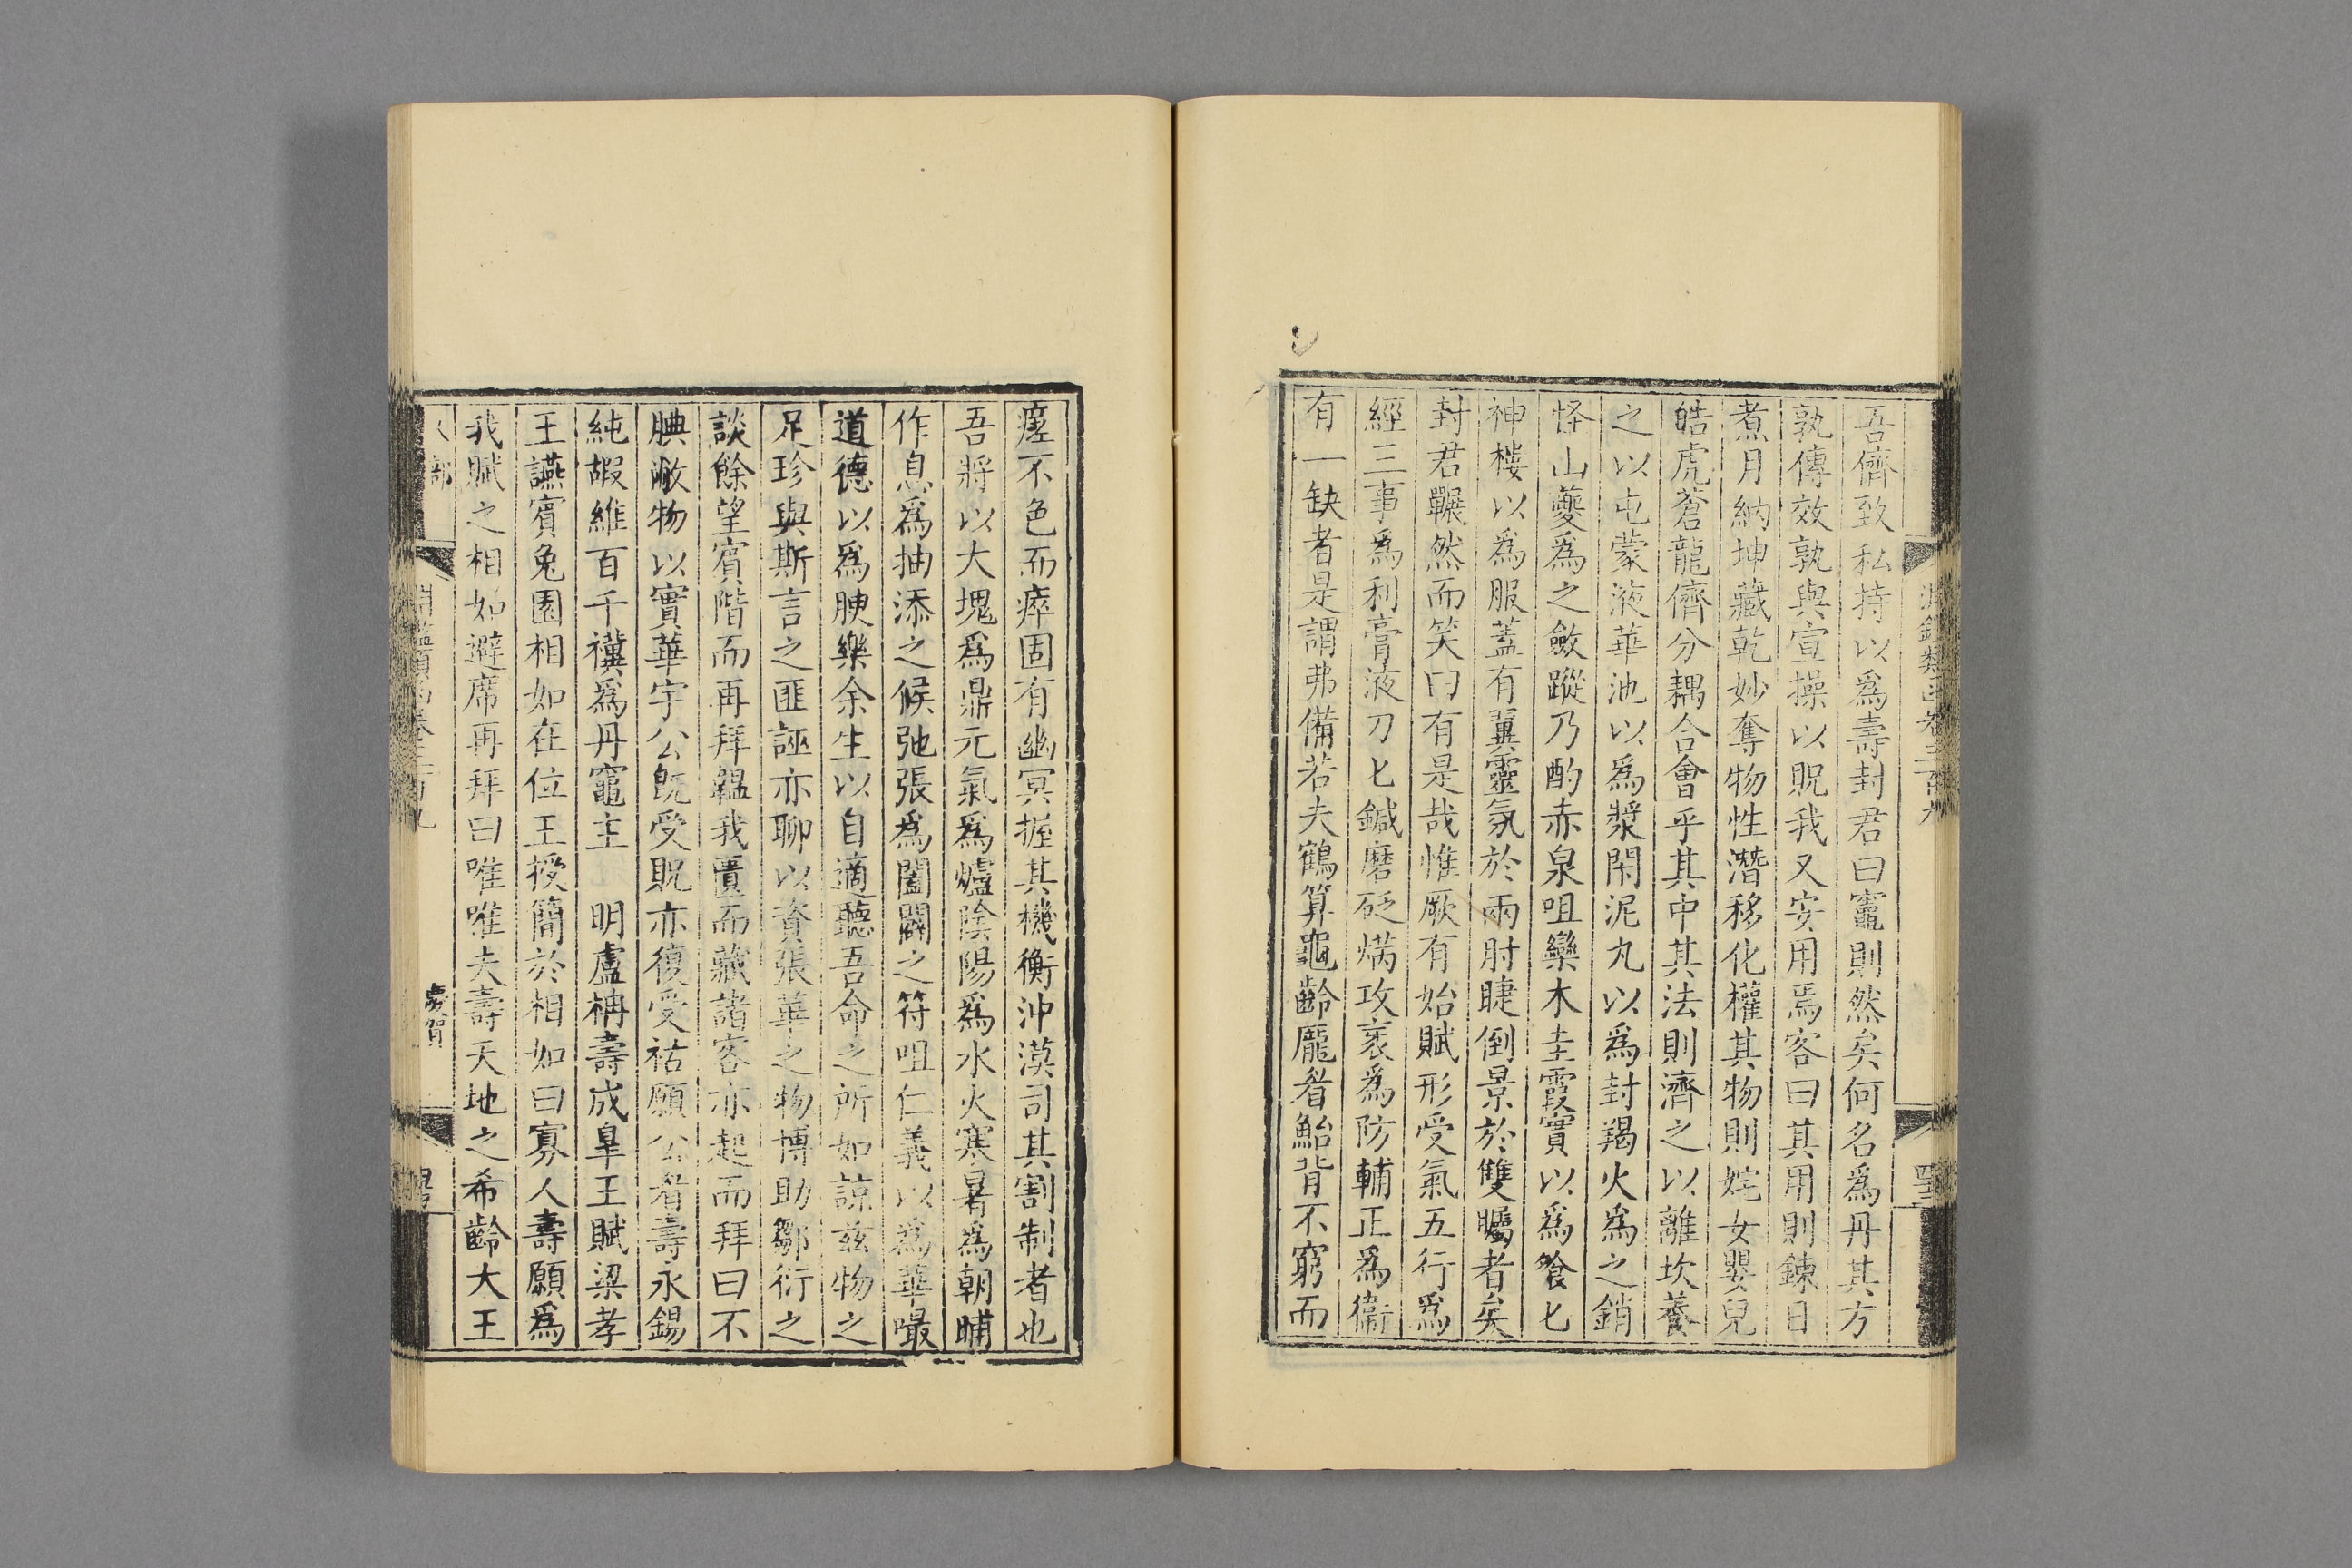 吾儕致私持以爲壽封君曰竈則然矣何名爲丹其方
孰傳效孰與宣操以貺我又安用焉客曰其用則鍊日
煮月納坤藏乾妙奪物性潛移化權其物則姹女嬰兒
皓虎蒼龍儕分耦合會乎其中其法則濟之以離坎養
之以屯蒙液華池以爲漿閑泥丸以爲封羯火爲之銷
怪山夔爲之斂蹤乃酌赤泉咀欒木圭霞實以爲飡匕
神樓以爲服蓋有翼靈氛於兩肘睫倒景於雙矚者矣
封君囅然而笑曰有是哉惟厥有始賦形受氣五行爲
經三事爲利膏液刀匕鍼磨砭焫攻衺爲防輔正爲衞
有一缺者是謂弗備若夫鶴算龜齡龐眉鮐背不窮而
瘥不色而瘁固有幽冥握其機衡沖漠司其割制者也
吾將以大塊爲鼎元氣爲爐陰陽爲水火寒暑爲朝晡
作息爲抽添之候弛張爲闔闢之符咀仁義以爲華嘬
道德以爲腴樂余生以自適聽吾命之所如諒茲物之
足珍與斯言之匪誣亦聊以資張華之物博助鄒衍之
談餘望賓階而再拜韞我匱而藏諸客亦起而拜曰不
腆敝物以實華宇公既受貺亦復受祜願公眉壽永錫
純嘏維百千禩爲丹竈主　明盧柟壽成臯王賦梁孝
王讌賓兔園相如在位王授簡於相如曰寡人壽願爲
我賦之相如避席再拜曰唯唯夫壽天地之希齡大王
淵鑑類函卷三百九
人部
淵鑑類函卷三百九
慶賀